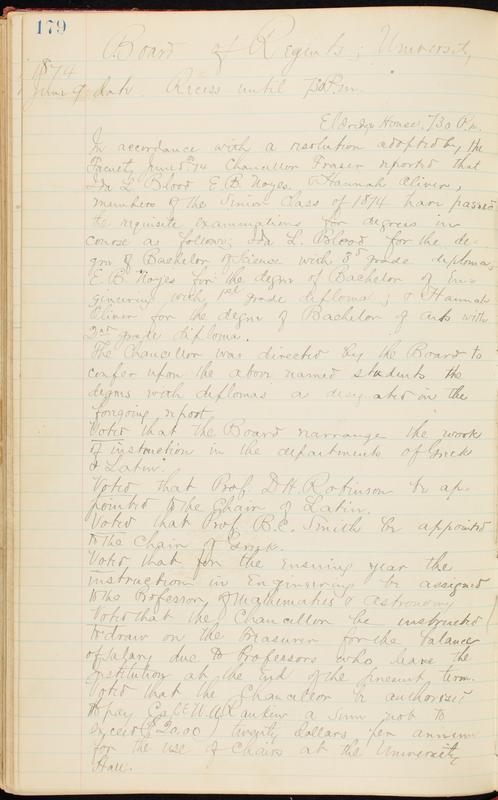 179
Board of Regents; University,
1874
June 9th date. Recess until 7:30 P.m.
Eldridge House, 7:30 P.m.
In accordance with a resolution adopted by the
Faculty June 5th 74 Chancellor Fraser reported that
Ida L. Blood E. B. Noyes, & Hannah Oliver,
members of the Senior Class of 1874 have passed
the requisite examinations for degrees in
course as follows; Ida L. Blood for the de-
gree of Bachelor of Science with 3d grade diploma,
E. B. Noyes for the degree of Bachelor of En-
gineering with 1st grade diploma; & Hannah
Oliver for the degree of Bachelor of Arts with
2nd grade diploma.
The Chancellor was directed by the Board to
confer upon the above named students the
degrees with diplomas as designated in the
forgoing report.
Voted that the Board rearrange the work
of instruction in the departments of Greek
& Latin.
Voted that Prof. D. H. Robinson be ap-
pointed to the Chair of Latin.
Voted that Prof. B. C. Smith be appointed
to the Chair of Greek.
Voted that for the ensuing year the
instruction in Engineering be assigned
to the Professor of Mathematics & Astronomy
Voted that the Chancellor be instructed
to draw on the Treasurer for the balance
of salary due to Professors who leave the
institution at the end of the present term.
Voted that the Chancellor be authorized
to pay W. A. a sum not to
exceed ($20.00) twenty dollars per annum
for the use of Chairs at the University
Hall.